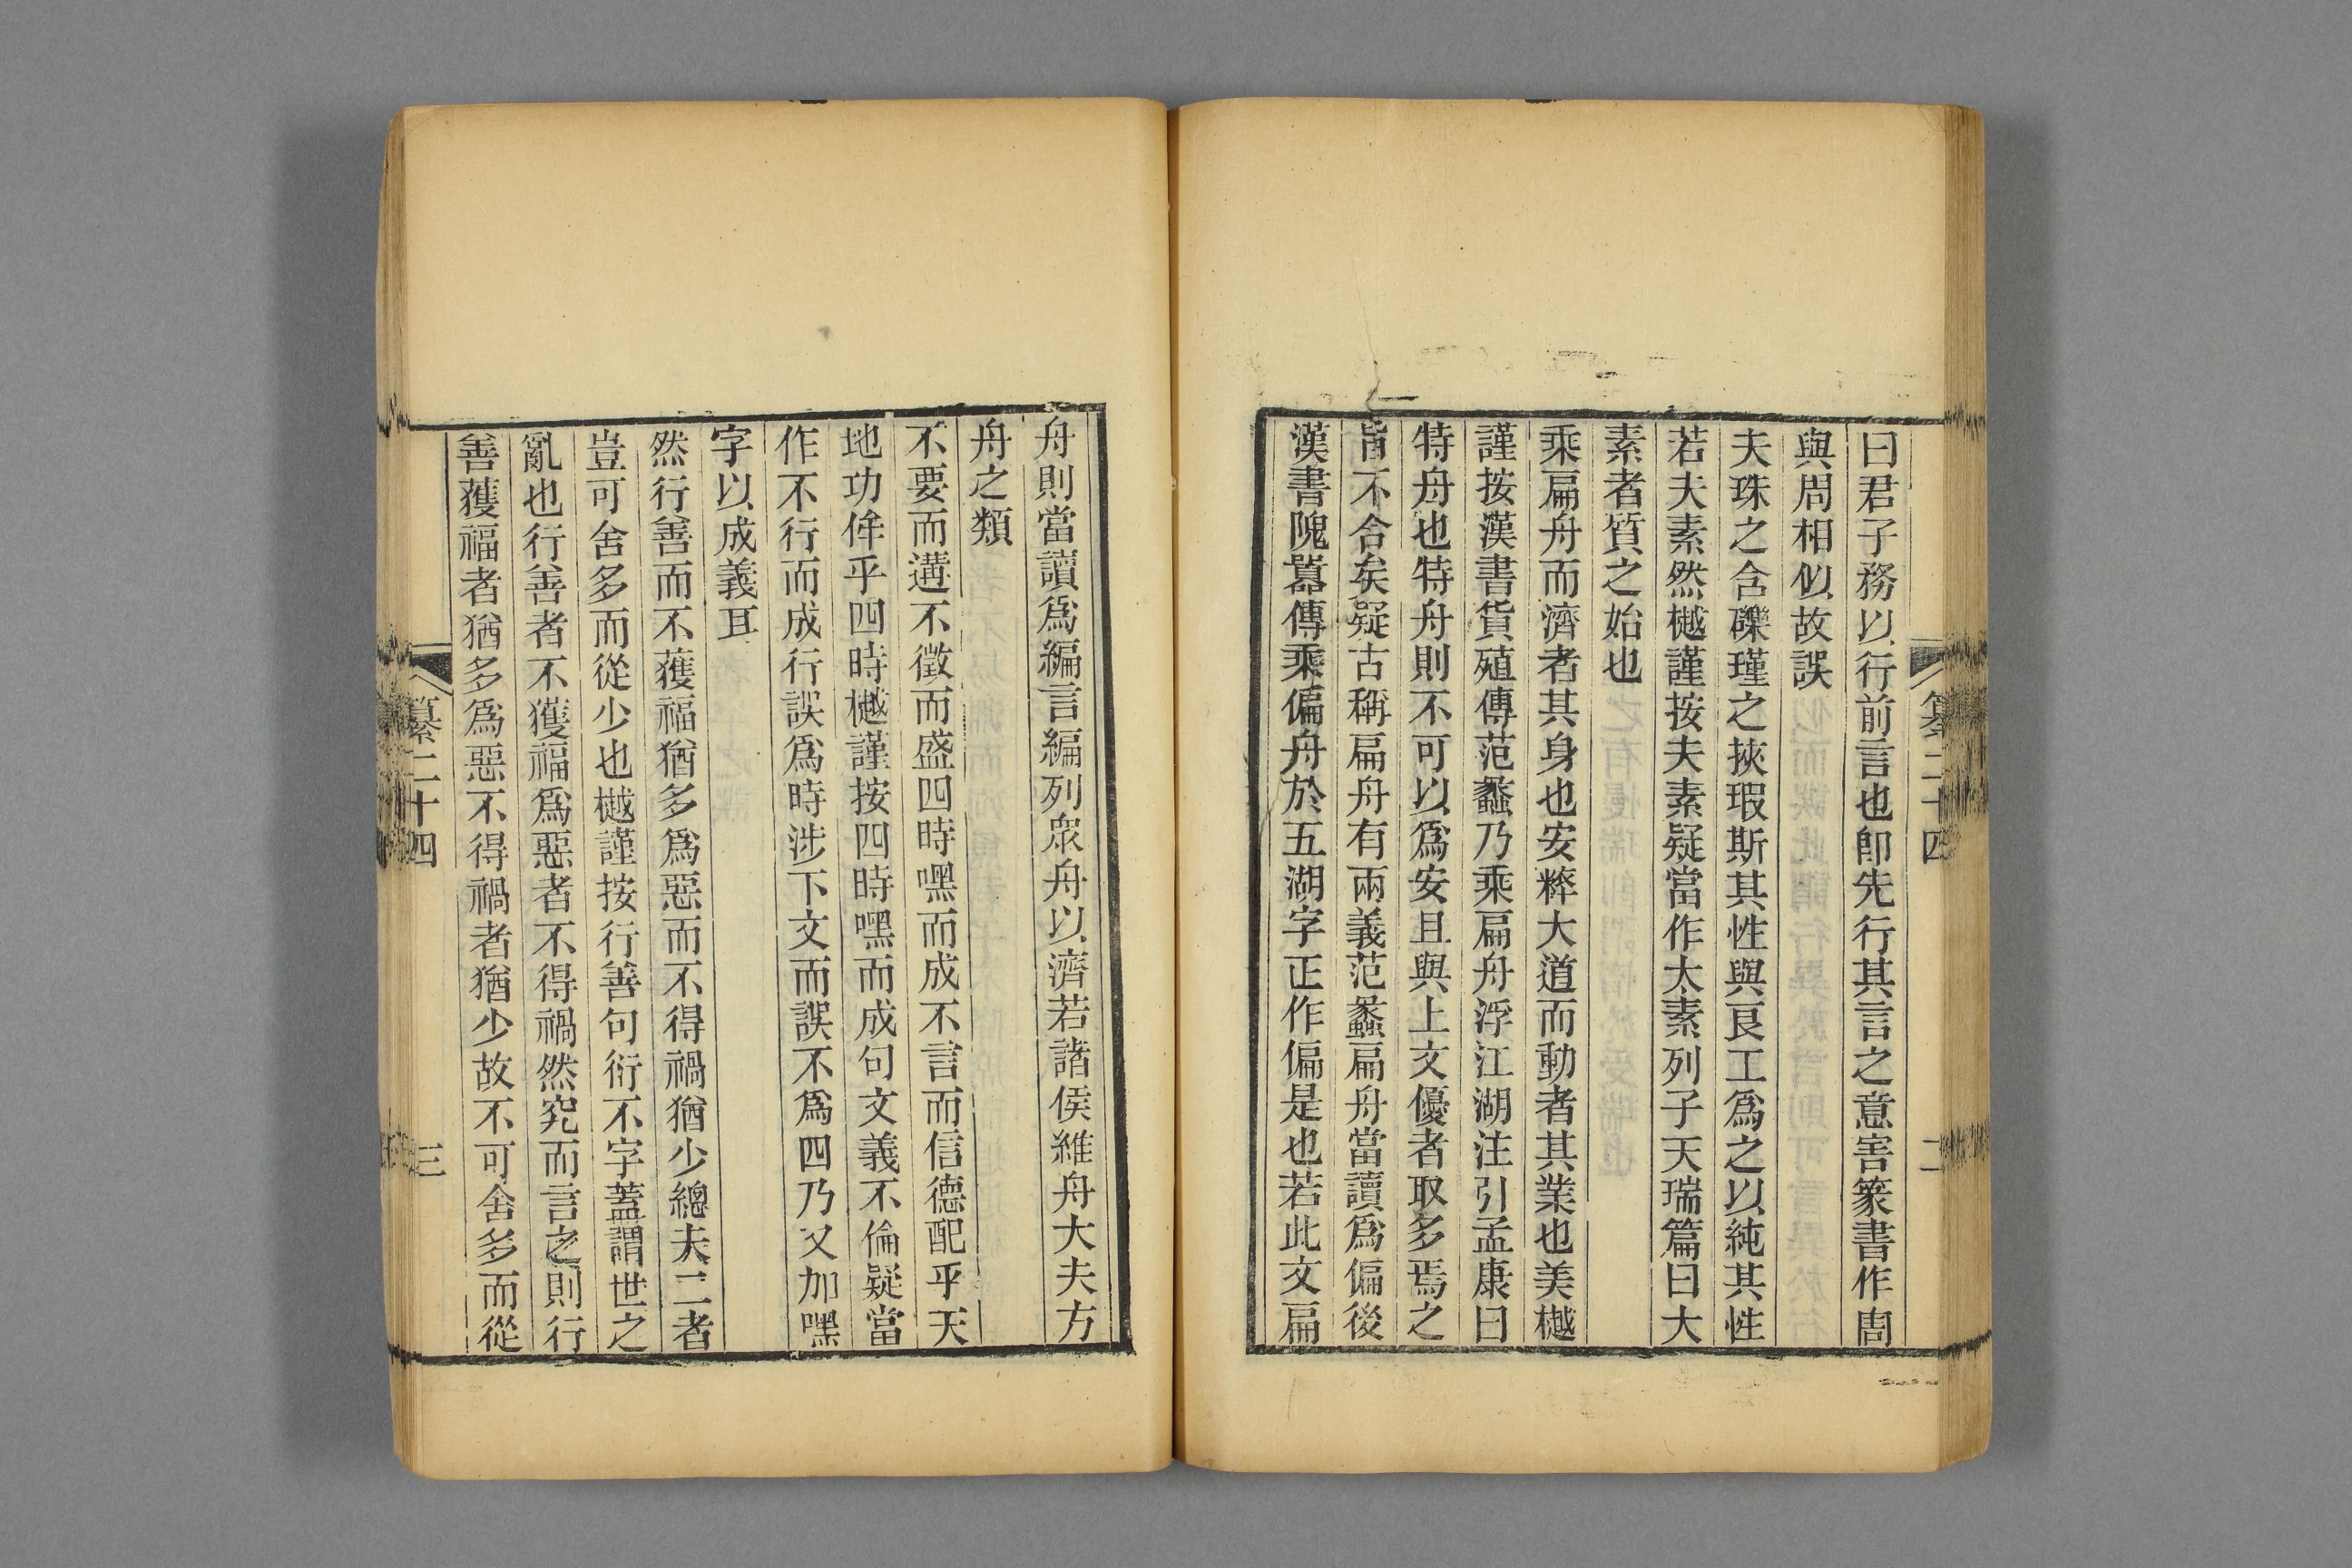 纂二十四
二
曰君子務以行前言也卽先行其言之意害篆書作周
與周相似故誤
夫珠之含礫瑾之挾瑕斯其性與良工爲之以純其性
若夫素然樾謹按夫素疑當作太素列子天瑞篇曰大
素者質之始也
乘扁舟而濟者其身也安粹大道而動者其業也美樾
謹按漢書貨殖傳范蠡乃乘扁舟浮江湖注引孟康曰
特舟也特舟則不可以爲安且與上文優者取多焉之
皆不合矣疑古稱扁舟有兩義范蠡扁舟當讀爲偏後
漢書隗囂傳乘偏舟於五湖字正作偏是也若此文扁
舟則當讀爲編言編列眾舟以濟若諸侯維舟大夫方
舟之類
不要而遘不徵而盛四時嘿而成不言而信德配乎天
地功侔乎四時樾謹按四時嘿而成句文義不倫疑當
作不行而成行誤爲時涉下文而誤不爲四乃又加嘿
字以成義耳
然行善而不獲福猶多爲惡而不得禍猶少總夫二者
豈可舍多而從少也樾謹按行善句衍不字蓋謂世之
亂也行善者不獲福爲惡者不得禍然究而言之則行
善獲福者猶多爲惡不得禍者猶少故不可舍多而從
纂二十四
三